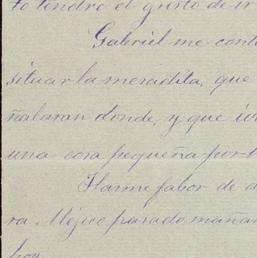 to tendré el gusto de ir
Gabriel me cont
situar la mesadita, que
ñalaran donde, y que
una cosa pequeña por
Harme fabor de d
ra Méjico pasado mañan
hoy